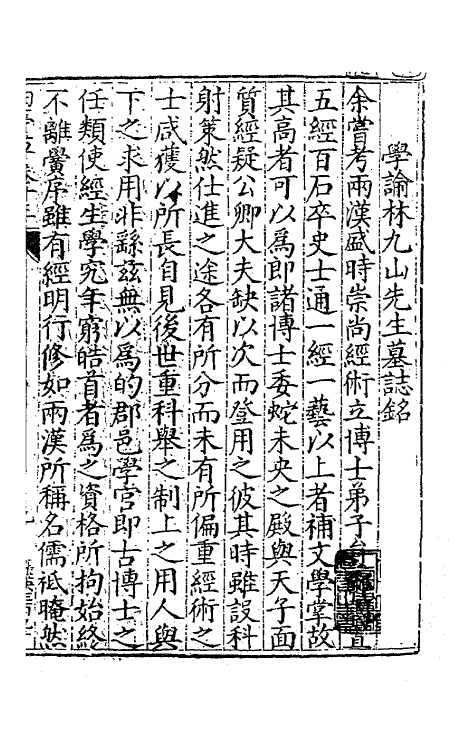 學諭林九山先生墓誌銘
余嘗考兩漢盛時崇尚經術立博士弟子
五經百石卒史士通一經一藝以上者補文學掌故
其高者可以爲郎諸博士委蛇未央之殿與天子面
質經疑公卿大夫缺以次而登用之彼其時雖設科
射策然仕進之途各有所分而未有所偏重經術之
士咸獲以所長自見後世重科舉之制上之用人與
下之求用非繇茲無以爲的郡邑學官即古博士之
任類使經生學究年窮皓首者爲之資格所拘始終
不離黌序雖有經明行修如兩漢所稱名儒祗晻然